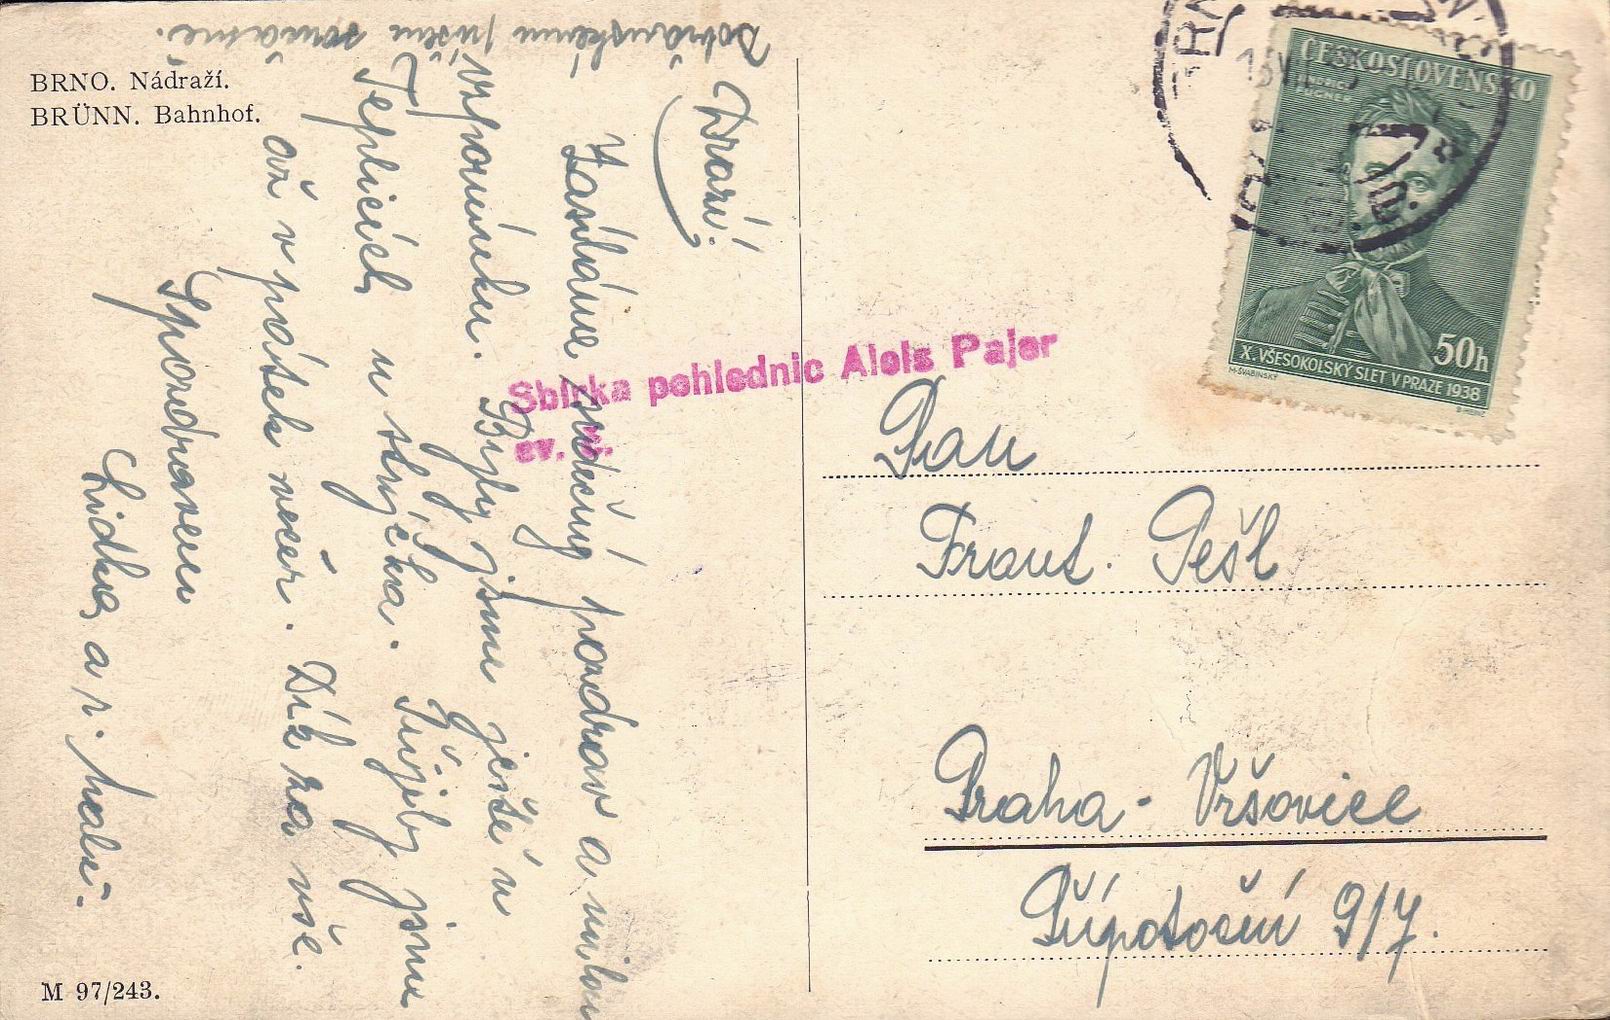 BRNO. Nádraží.
BRÜNN. Bahnhof.
Drazí!
Zasíláme srdečný pozdrav a milou
vzpomínku. Byly jsme ještě v
Teplicích u strýčka. Přijely jsme
až v pátek večer. Dík za vše.
S pozdravem
Lidka a r.
M 97/243.
Sbírka pohlednic Alois Pajer
ev. č.
ČESKOSLOVENSKO
JINDŘICH
FÜGNER
50h
X. VŠESOKOLSKÝ SLET V PRAZE 1938
M. ŠVABINSKÝ
Pan
Frant. Pešl
Praha - Vršovice
Přípotoční 9/7.